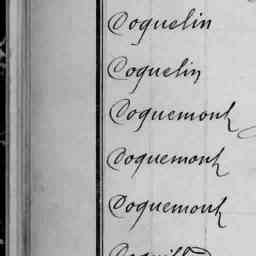 Coquelin
Coquelin
Coquemont
Coquemont
Coquemont